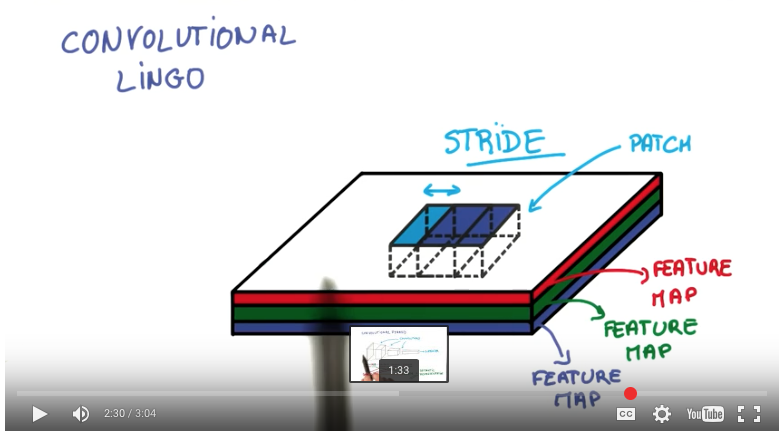 CONVOLUTIONAL
LINGO
STRIDE
PATCH
FEATURE
MAP
FEATURE
MAP
FEATURE
MAP
1:33
2:30 / 3:04
CC
YouTube